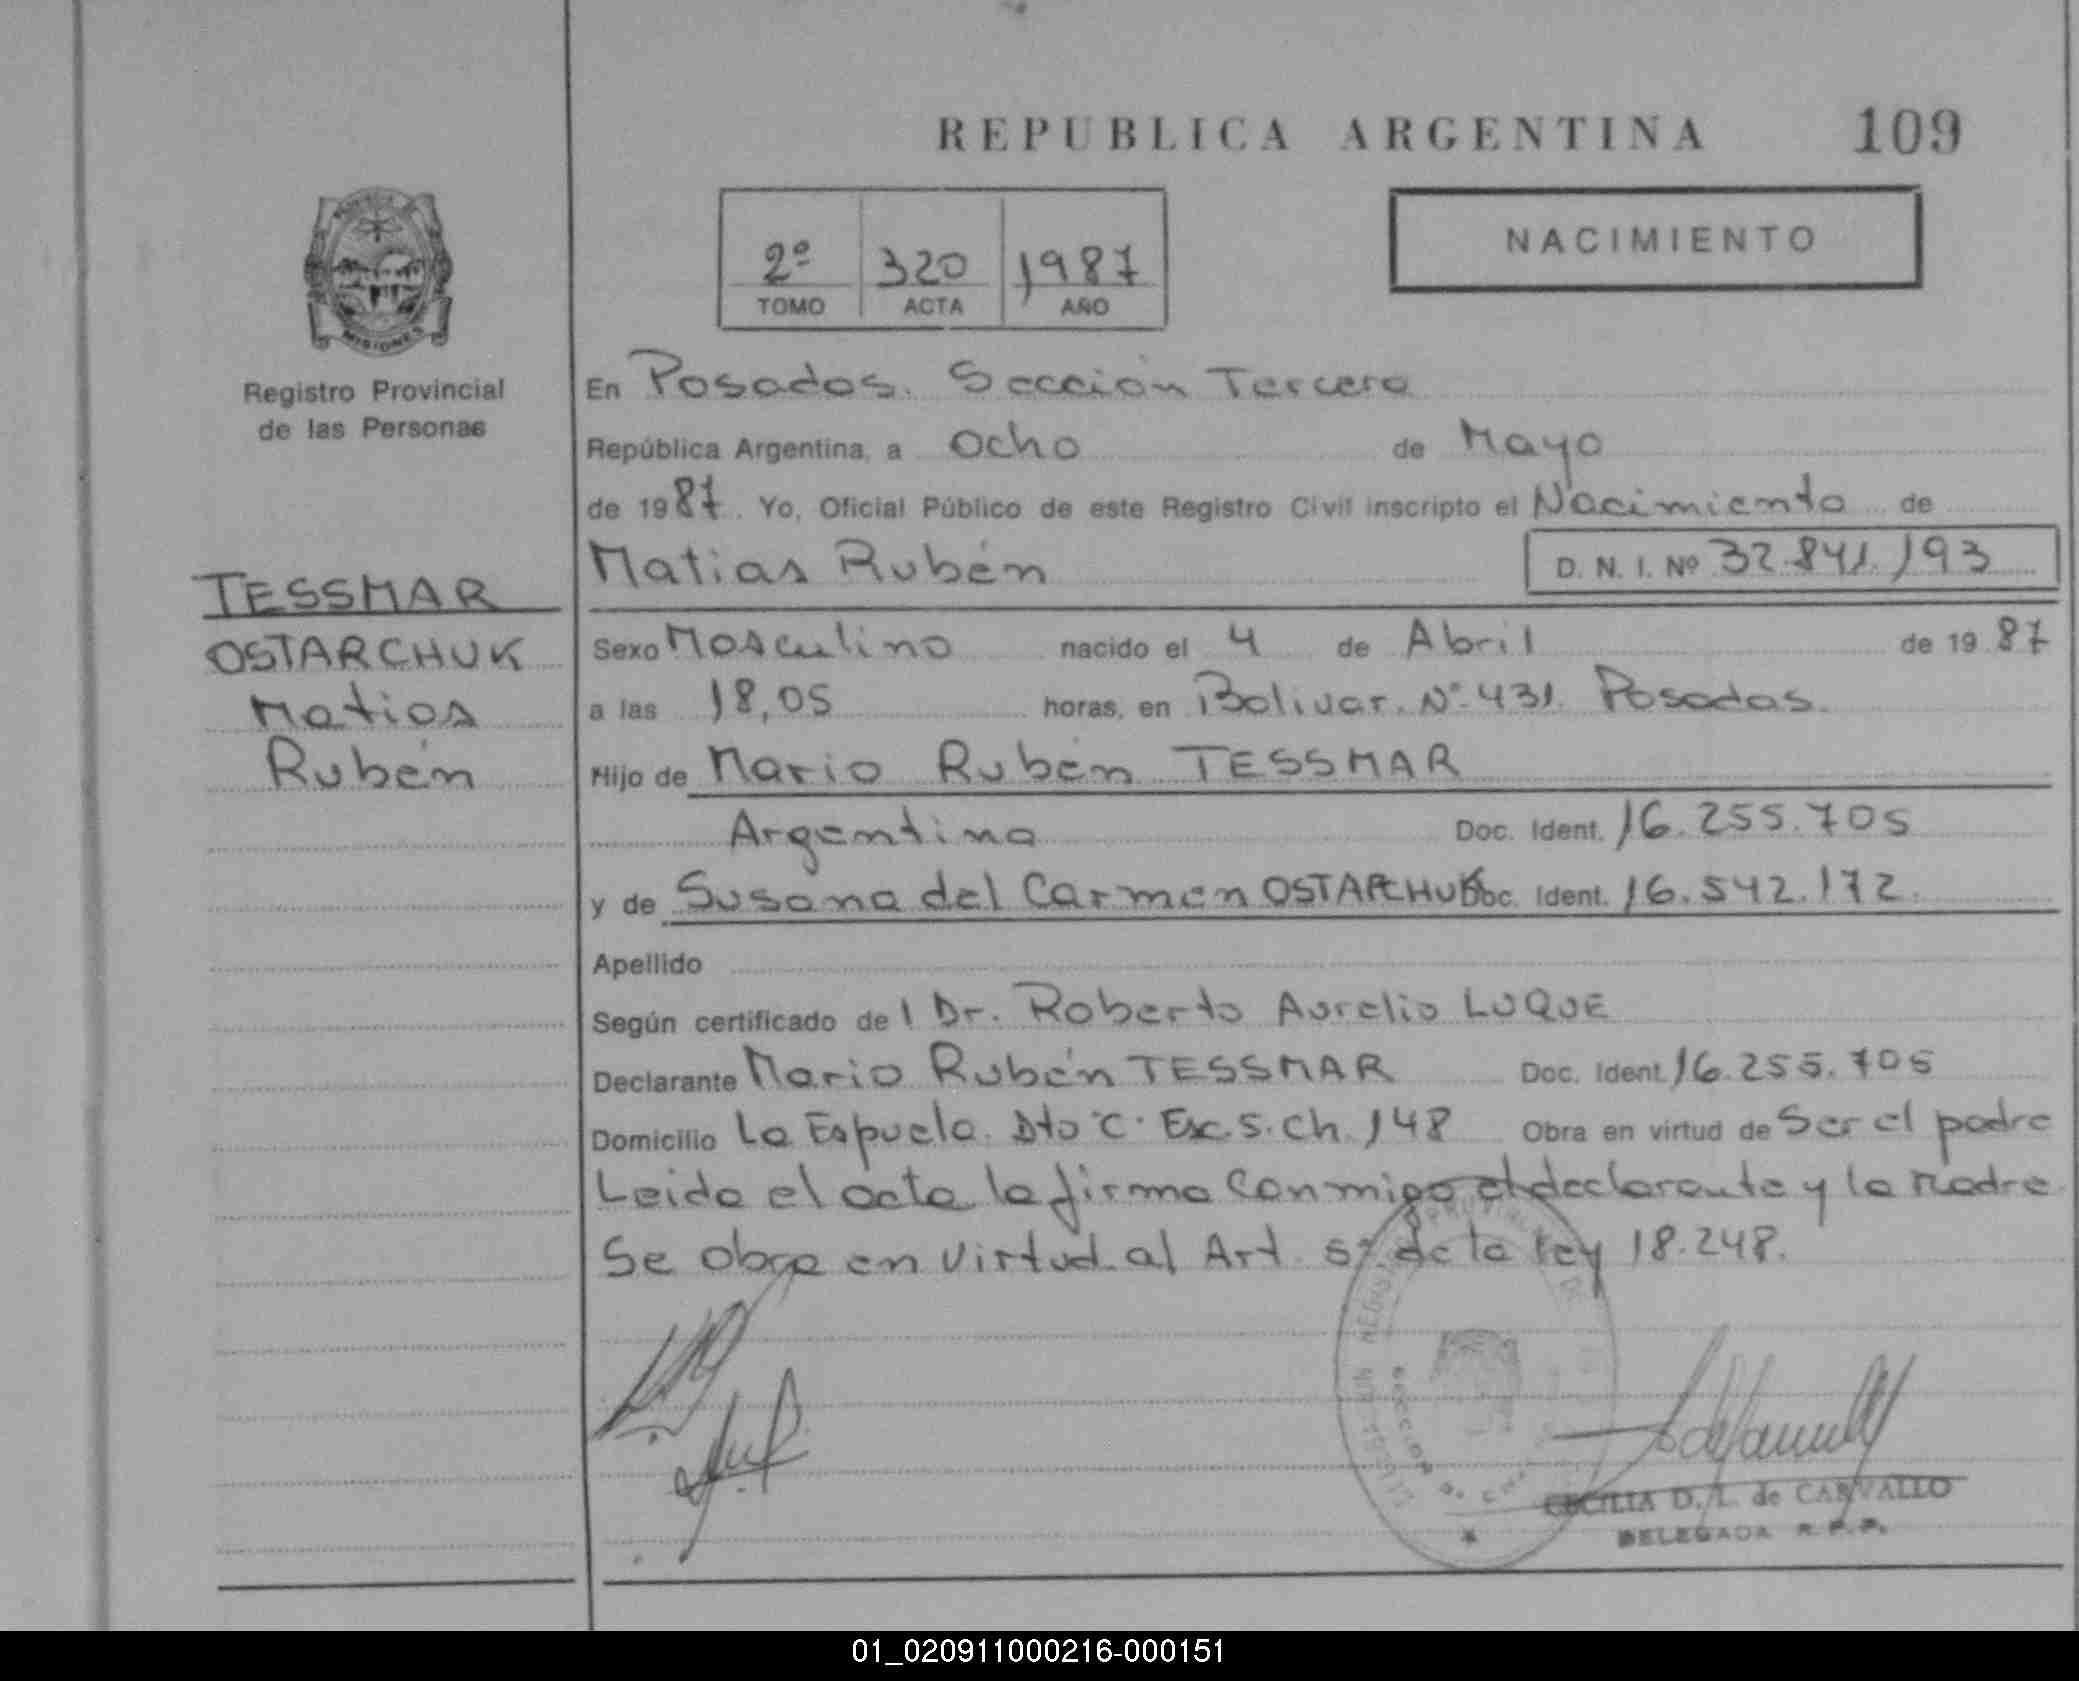 REPUBLICA ARGENTINA 109
NACIMIENTO
2º 320 1987
TOMO ACTA AÑO
MISIONES
Registro Provincial
de las Personas
TESSMAR
OSTARCHUK
Matias
Rubén
En Posadas. Sección Tercera
República Argentina, a Ocho de Mayo
de 1987. Yo, Oficial Público de este Registro Civil inscripto el Nacimiento de
Matias Rubén D. N. I. Nº 32.841.193
Sexo Masculino nacido el 4 de Abril de 1987
a las 18,05 horas, en Bolivar. Nº 431. Posadas.
Hijo de Mario Rubén TESSMAR
Argentina Doc. Ident. 16.255.705
y de Susana del Carmen OSTARCHUK Doc. Ident. 16.542.172.
Apellido
Según certificado del Dr. Roberto Aurelio LUQUE
Declarante Mario Rubén TESSMAR Doc. Ident. 16.255.705
Domicilio La Espuela. Dto "C" Esc. 5. Ch. 148 Obra en virtud de Ser el padre
Leida el acta la firma conmigo el declarante y la Madre
Se obra en virtud al Art. 5º de la ley 18.248.
CECILIA D. L. de CARVALLO
DELEGADA R. P. P.
01_020911000216-000151